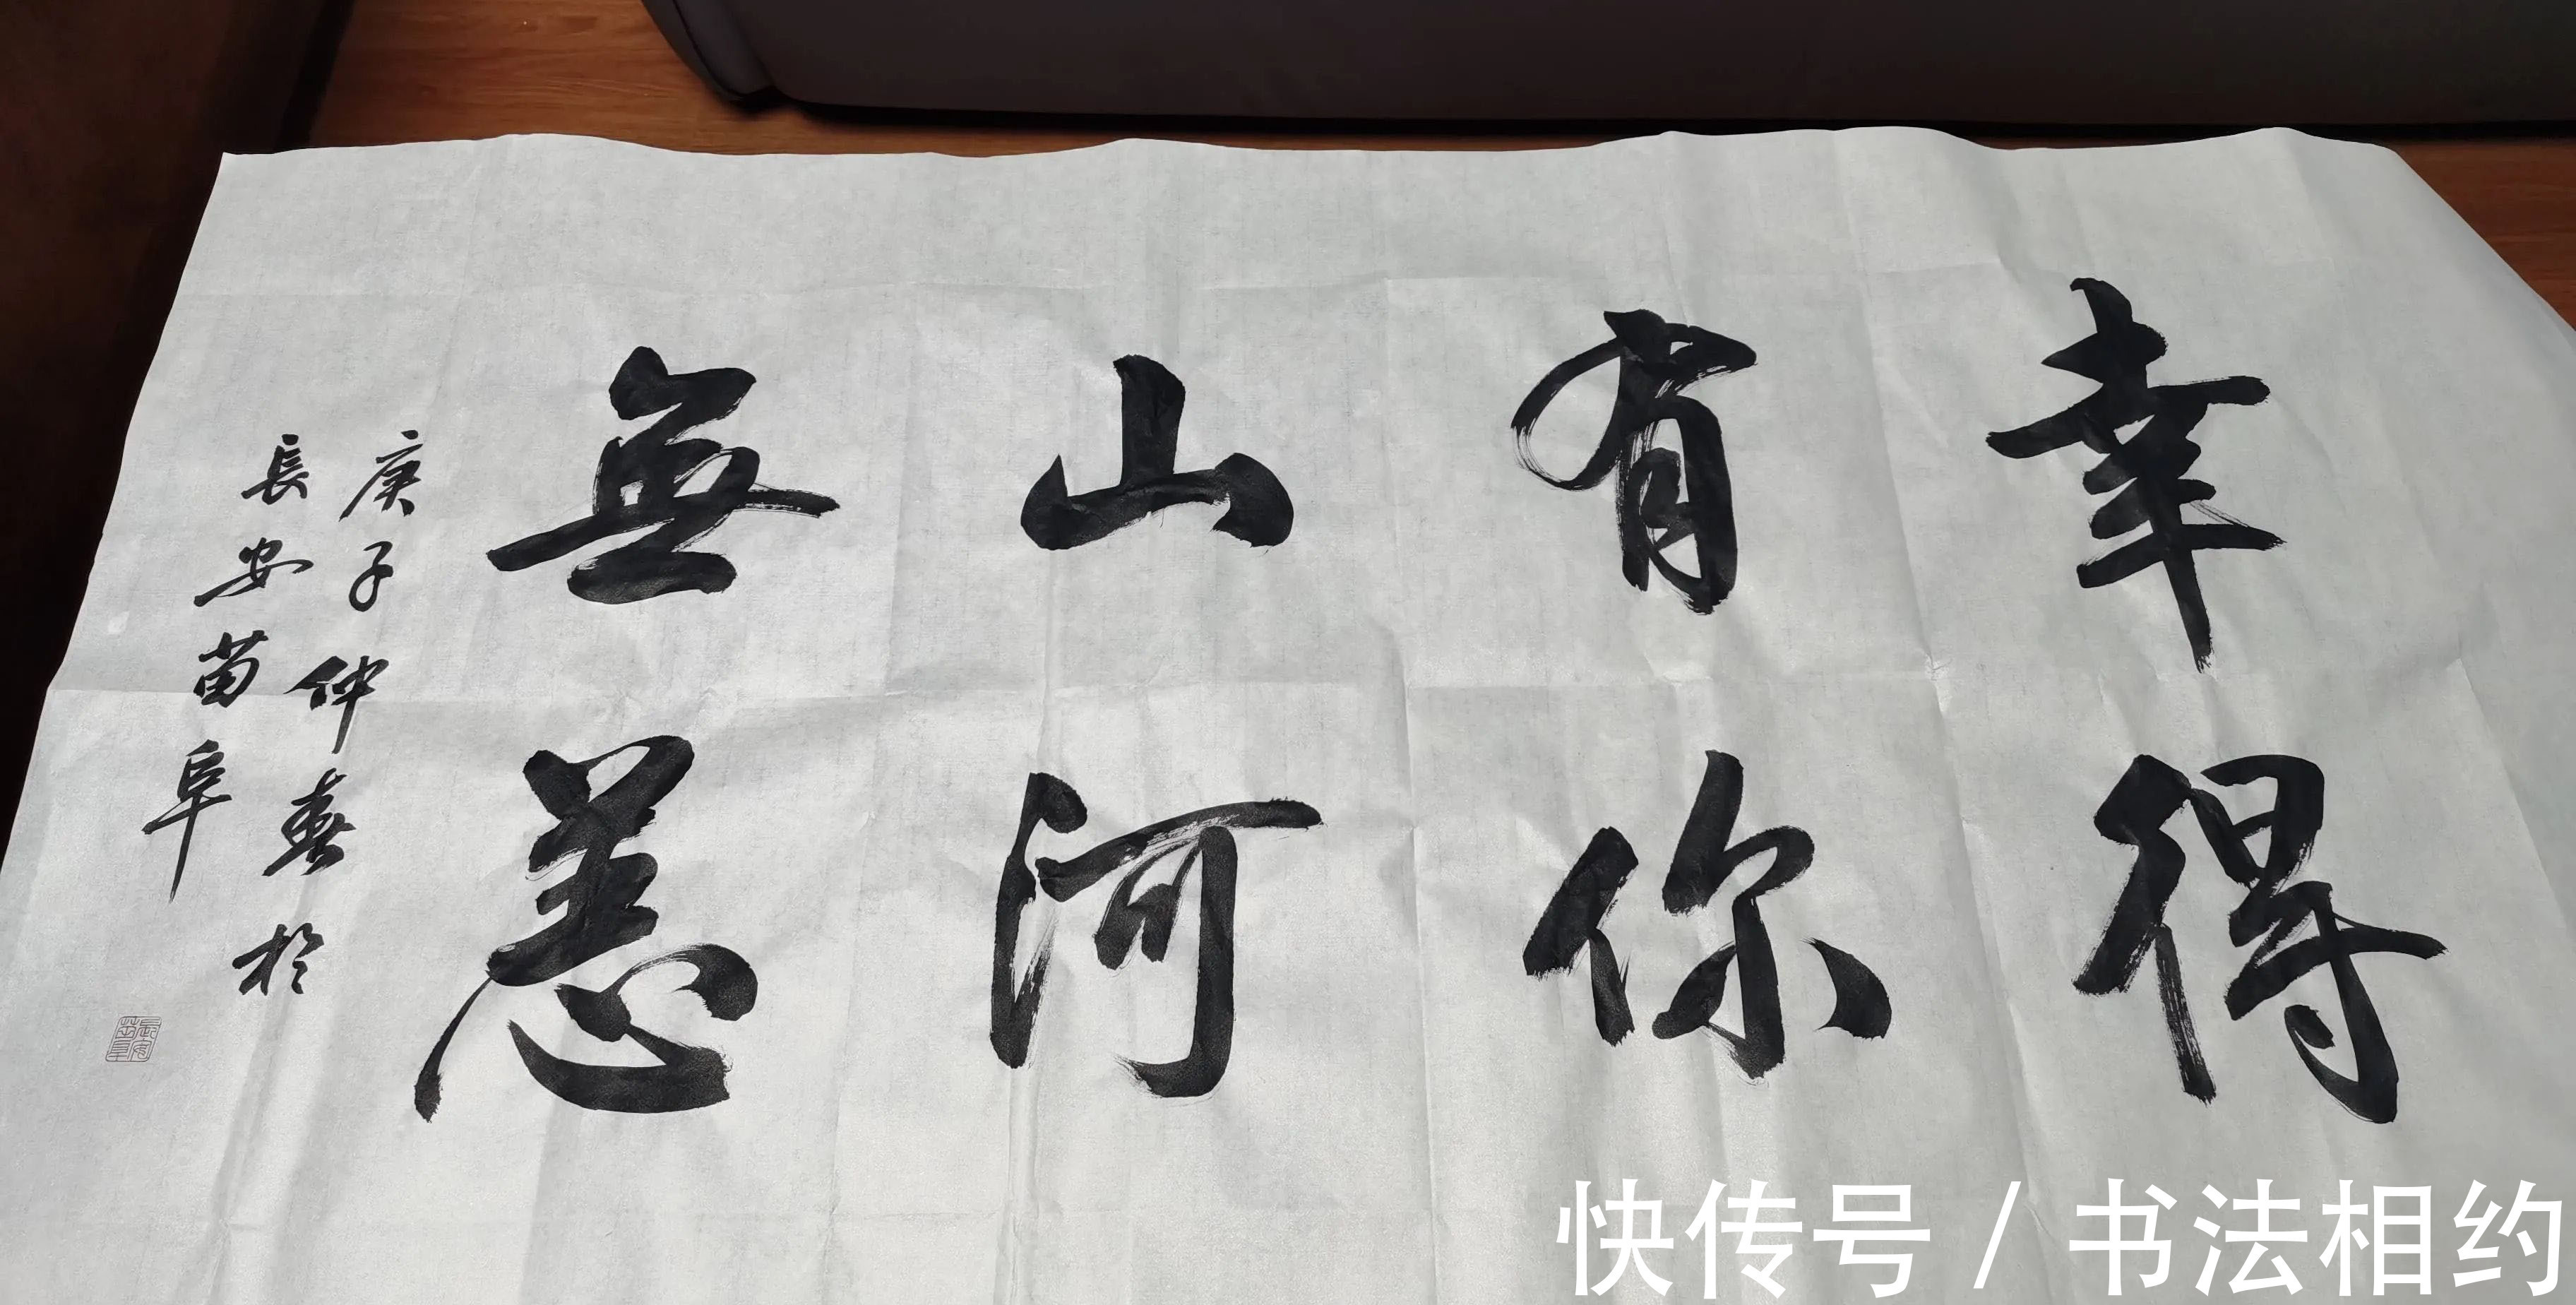 幸得
有你
山河
無恙
庚子仲春於
長安苗阜
長安
苗阜
快传号 / 书法相约